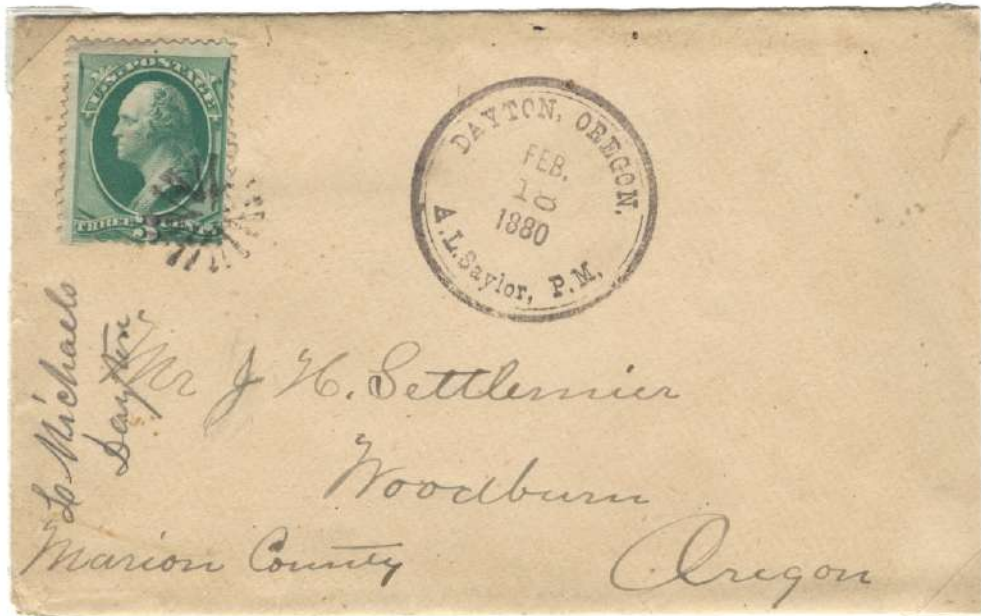 U.S. POSTAGE
THREE 3 CENTS
DAYTON, OREGON.
FEB.
18
1880
A.L. Saylor, P.M.
Michaels
Dayton
Mr J H. Settlemier
Woodburn
Marion County
Oregon